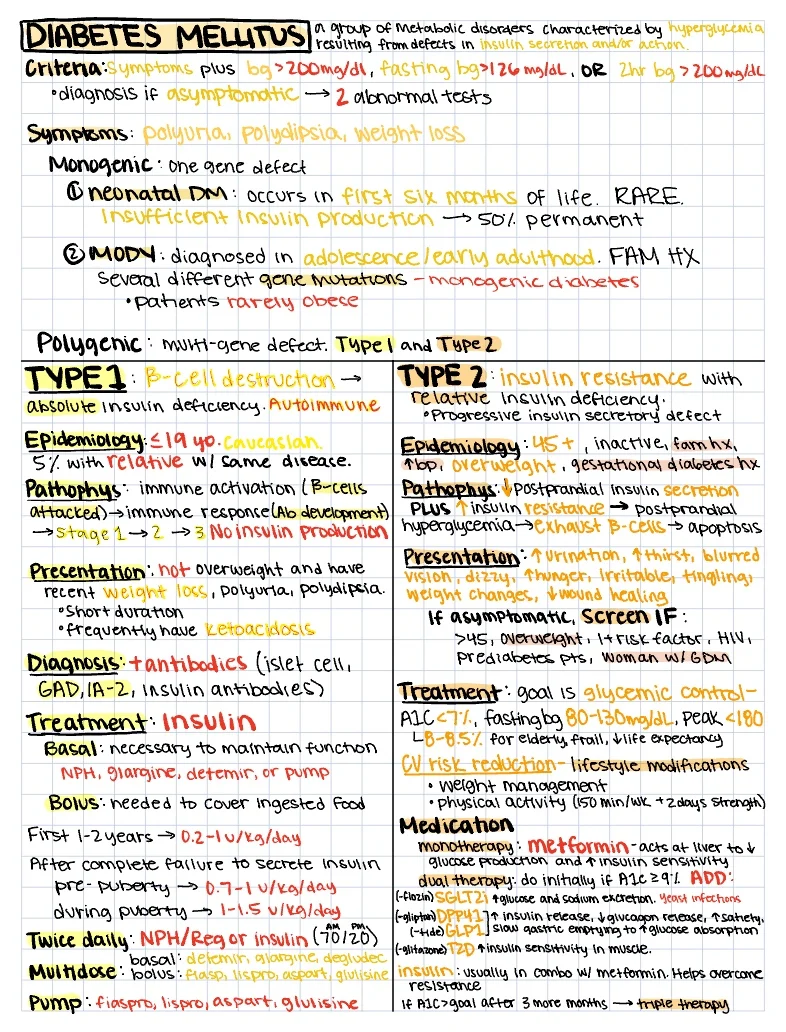 DIABETES MELLITUS a group of metabolic disorders characterized by hyperglycemia
resulting from defects in insulin secretion and/or action.
Criteria: Symptoms plus bg >200mg/dl, fasting bg >126 mg/dL, OR 2hr bg >200mg/dL
•diagnosis if asymptomatic → 2 abnormal tests
Symptoms: polyuria, polydipsia, weight loss
Monogenic: one gene defect
① neonatal DM: occurs in first six months of life. RARE.
Insufficient insulin production → 50% permanent
② MODY: diagnosed in adolescence/early adulthood. FAM HX
Several different gene mutations - monogenic diabetes
•patients rarely obese
Polygenic: multi-gene defect. Type 1 and Type 2
TYPE 1: B-cell destruction →
absolute insulin deficiency. Autoimmune
Epidemiology: ≤19 yo. Caucasian.
5% with relative w/ same disease.
Pathophys: immune activation (B-cells
attacked) → immune response (Ab development)
→ Stage 1 → 2 → 3 No insulin production
Presentation: not overweight and have
recent weight loss, polyuria, polydipsia.
•Short duration
•frequently have ketoacidosis
Diagnosis: + antibodies (islet cell,
GAD, IA-2, insulin antibodies)
Treatment: Insulin
Basal: necessary to maintain function
NPH, glargine, detemir, or pump
Bolus: needed to cover ingested food
First 1-2 years → 0.2-1 u/kg/day
After complete failure to secrete insulin
pre-puberty → 0.7-1 u/kg/day
during puberty → 1-1.5 u/kg/day
Twice daily: NPH/Reg or insulin (70/20)
AM PM
Multidose: basal: detemir, glargine, degludec
bolus: fiasp, lispro, aspart, glulisine
Pump: fiaspro, lispro, aspart, glulisine
TYPE 2: insulin resistance with
relative insulin deficiency.
•Progressive insulin secretory defect
Epidemiology: 45+, inactive, fam hx,
↑bp, overweight, gestational diabetes hx
Pathophys: ↓postprandial insulin secretion
PLUS ↑ insulin resistance → postprandial
hyperglycemia → exhaust B-cells → apoptosis
Presentation: ↑urination, ↑thirst, blurred
vision, dizzy, ↑hunger, irritable, tingling,
weight changes, ↓wound healing
If asymptomatic, Screen IF:
>45, overweight, 1+ risk factor, HIV,
Prediabetes pts, woman w/ GDM
Treatment: goal is glycemic control-
A1C <7%, fasting bg 80-130mg/dL, peak <180
8-8.5% for elderly, frail, ↓life expectancy
CV risk reduction- lifestyle modifications
• weight management
• physical activity (150 min/wk + 2days strength)
Medication
monotherapy: metformin-acts at liver to ↓
glucose production and ↑ insulin sensitivity
dual therapy: do initially if A1C ≥9% ADD:
(-flozin) SGLT2i ↑glucose and sodium excretion. Yeast infections
(-gliptin) DPP41 ↑ insulin release, ↓glucagon release, ↑satiety,
(-tide) GLP1 slow gastric emptying to ↑glucose absorption
(-glitazone) TZD ↑insulin sensitivity in muscle.
insulin: usually in combo w/ metformin. Helps overcome
resistance
If A1C>goal after 3 more months → triple therapy